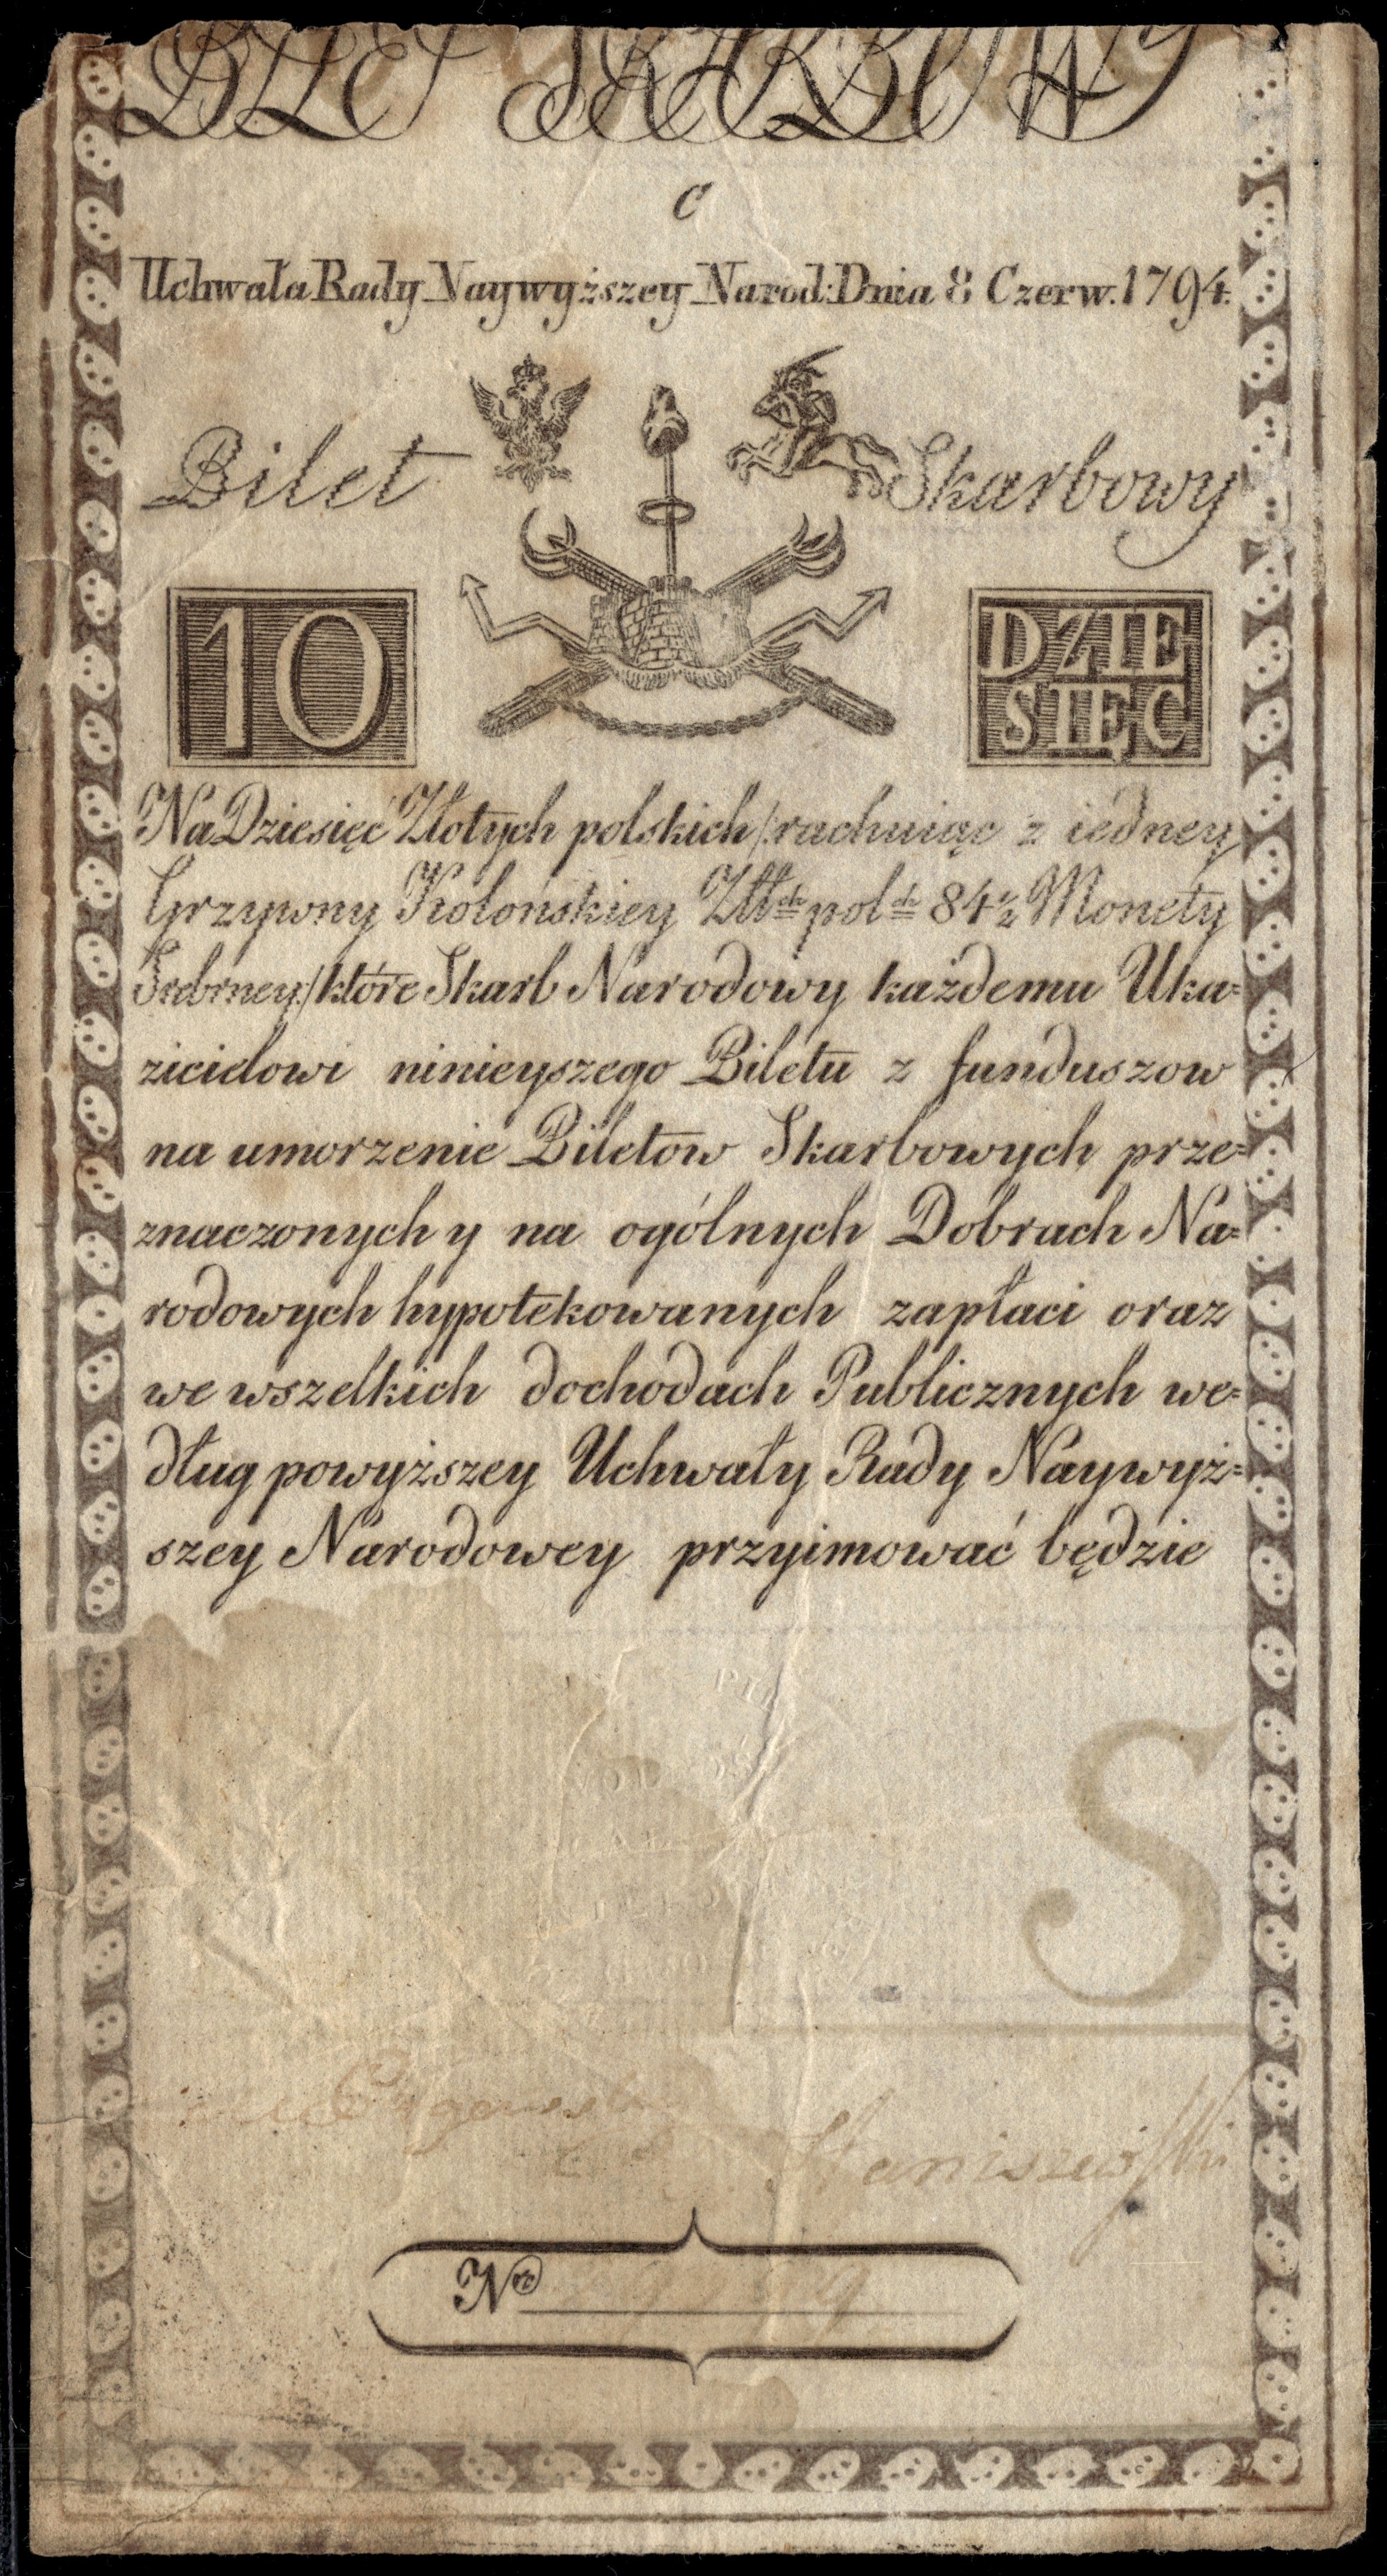 BILET SKARBOWY
C
Uchwała Rady Naywyższey Narod: Dnia 8 Czerw. 1794.
Bilet Skarbowy
10
DZIE
SIĘĆ
Na Dziesięć Złotych polskich /:rachuiąc z iedney
Grzywny Kolońskiey Złł^ch pol^ch 84½ Monety
Srebrney:/ które Skarb Narodowy każdemu Uka=
zicielowi ninieyszego Biletu z funduszow
na umorzenie Biletow Skarbowych prze=
znaczonych y na ogólnych Dobrach Na=
rodowych hypotekowanych zapłaci oraz
we wszelkich dochodach Publicznych we=
dług powyższey Uchwały Rady Naywyż=
szey Narodowey przyimować będzie
S
Staniszewski
N^ro